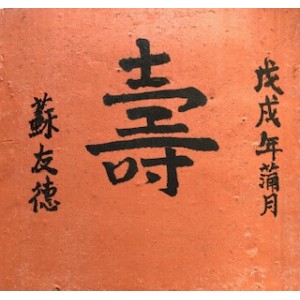 戊戌年蒲月
壽
蘇友德